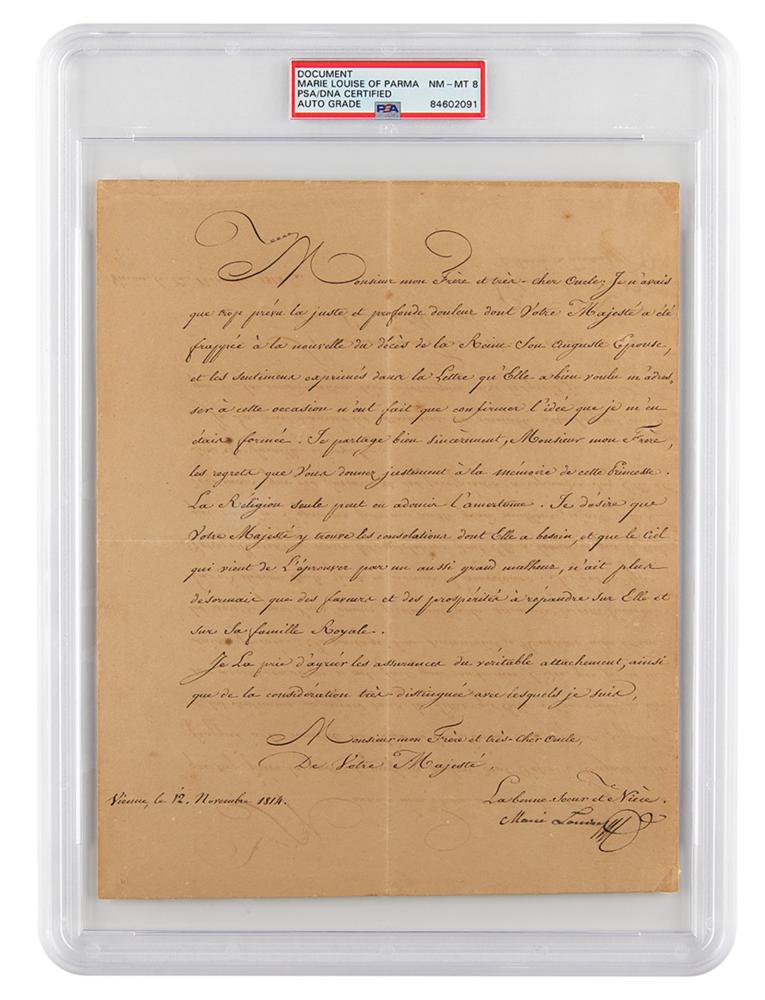 DOCUMENT
MARIE LOUISE OF PARMA NM - MT 8
PSA/DNA CERTIFIED
AUTO GRADE PSA 84602091
Monsieur mon Frère et très-cher Oncle, Je n'avais
que trop prévu la juste et profonde douleur dont Votre Majesté a été
frappée à la nouvelle du décès de la Reine Son Auguste Epouse,
et les sentimens exprimés dans la Lettre qu'Elle a bien voulu m'adres,
ser à cette occasion n'ont fait que confirmer l'idée que je m'en
étais formée. Je partage bien sincèrement, Monsieur mon Frère,
les regrets que Vous donnez justement à la mémoire de cette Princesse.
La Réligion seule peut en adoucir l'amertume. Je désire que
Votre Majesté y trouve les consolations dont Elle a besoin, et que le Ciel
qui vient de L'éprouver par un aussi grand malheur, n'ait plus
désormais que des faveurs et des prospérités à répandre sur Elle et
sur Sa famille Royale.
Je La prie d'agréer les assurances du véritable attachement, ainsi
que de la considération très-distinguée avec lesquels je suis,
Monsieur mon Frère et très-cher Oncle,
De Votre Majesté,
Vienne, le 12. Novembre 1814.
La bonne Soeur et Nièce.
Marie Louise